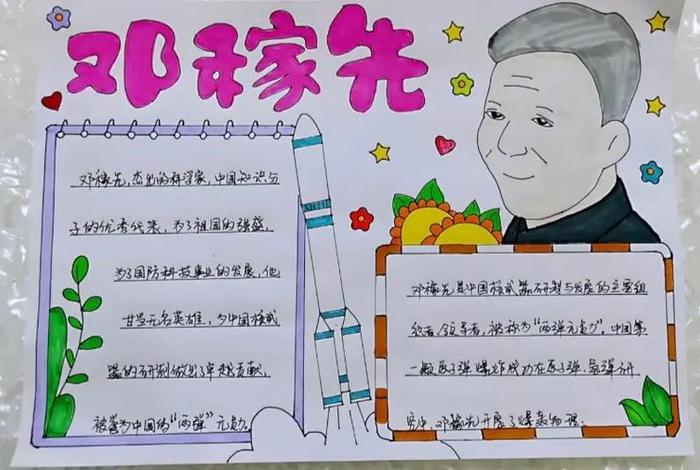 邓稼先
邓稼先,杰出的科学家,中国知识分
子的优秀代表,为了祖国的强盛,
为了国防科技事业的发展,他
甘当无名英雄,为中国核武
器的研制做出了卓越贡献,
被誉为中国的“两弹”元勋。
邓稼先是中国核武器研制与发展的主要组
织者、领导者,被称为“两弹元勋”。中国第
一颗原子弹爆炸成功在原子弹、氢弹研
究中,邓稼先开展了爆轰物理、